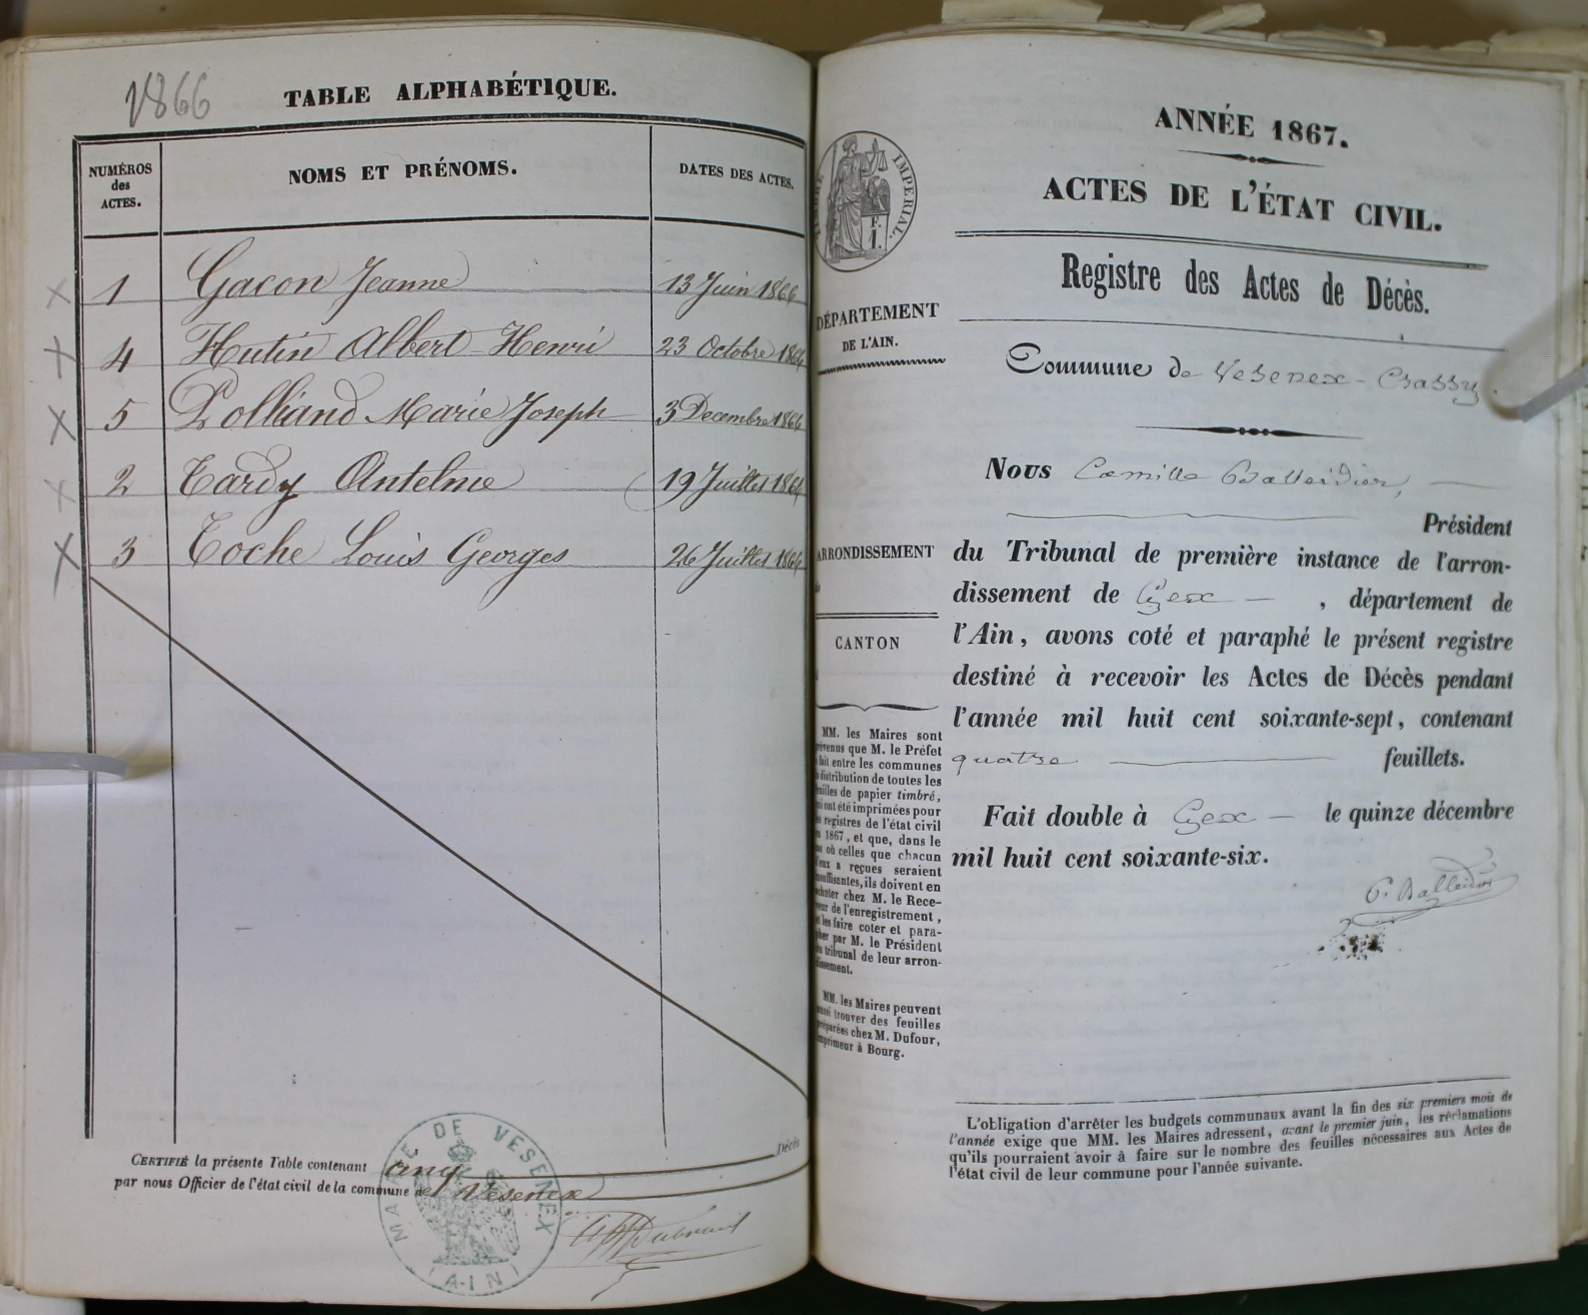 1866
TABLE ALPHABÉTIQUE.
NUMÉROS
des
ACTES.
NOMS ET PRÉNOMS.
DATES DES ACTES.
1 Gacon Jeanne 13 Juin 1866
4 Hutin Albert Henri 23 Octobre 1866
5 Polliand Marie Joseph 3 Decembre 1866
2 Tardy Antelme 19 Juillet 1866
3 Toche Louis Georges 26 Juillet 1866
Décès
CERTIFIÉ la présente Table contenant cinq
par nous Officier de l'état civil de la commune de Vesenex
MAIRIE DE VESENEX
(AIN)
ANNÉE 1867.
ACTES DE L'ÉTAT CIVIL.
Registre des Actes de Décès.
TIMBRE IMPÉRIAL.
F.
1.
DÉPARTEMENT
DE L'AIN.
ARRONDISSEMENT
CANTON
MM. les Maires sont
prévenus que M. le Préfet
a fait entre les communes
la distribution de toutes les
feuilles de papier timbré,
qui ont été imprimées pour
les registres de l'état civil
en 1867, et que, dans le
cas où celles que chacun
d'eux a reçues seraient
insuffisantes, ils doivent en
acheter chez M. le Rece-
veur de l'enregistrement,
et les faire coter et para-
pher par M. le Président
du tribunal de leur arron-
dissement.
MM. les Maires peuvent
aussi trouver des feuilles
préparées chez M. Dufour,
imprimeur à Bourg.
Commune de Vesenex-Crassy.
Nous Camille Balleidier,
Président
du Tribunal de première instance de l'arron-
dissement de Gex , département de
l'Ain, avons coté et paraphé le présent registre
destiné à recevoir les Actes de Décès pendant
l'année mil huit cent soixante-sept, contenant
quatre feuillets.
Fait double à Gex le quinze décembre
mil huit cent soixante-six.
C. Balleidier
L'obligation d'arrêter les budgets communaux avant la fin des six premiers mois de
l'année exige que MM. les Maires adressent, avant le premier juin, les réclamations
qu'ils pourraient avoir à faire sur le nombre des feuilles nécessaires aux Actes de
l'état civil de leur commune pour l'année suivante.